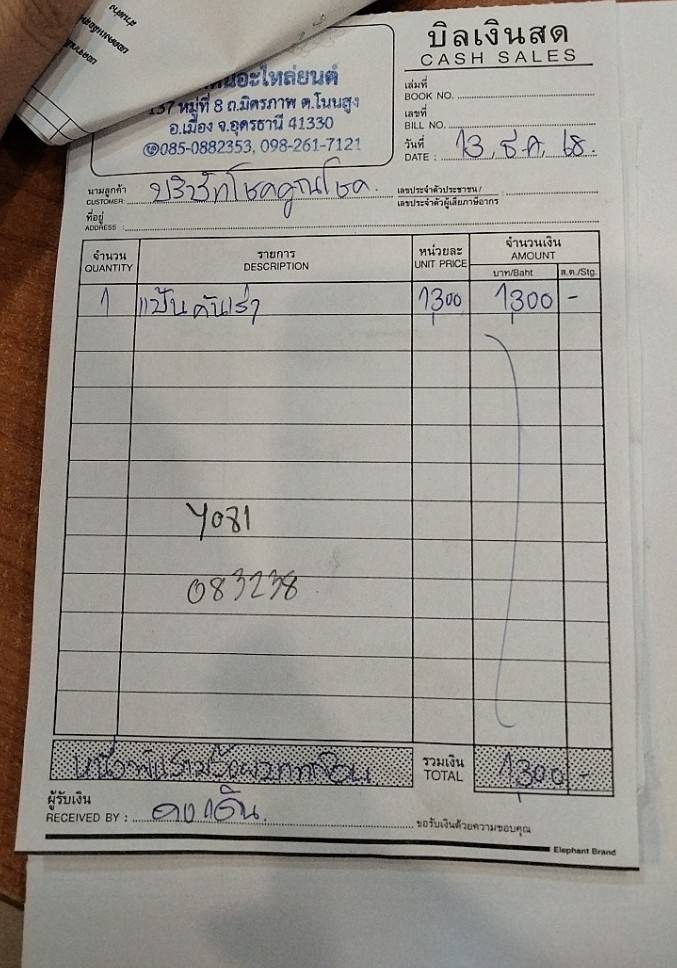 บิลเงินสด
CASH SALES
อะไหล่ยนต์
137 หมู่ที่ 8 ถ.มิตรภาพ ต.โนนสูง
อ.เมือง จ.อุดรธานี 41330
085-0882353, 098-261-7121
เล่มที่
BOOK NO.
เลขที่
BILL NO.
วันที่
DATE : 13, ธ.ค, 68.
นามลูกค้า
CUSTOMER บริษัทโชคคูณโชค.
เลขประจำตัวประชาชน/
เลขประจำตัวผู้เสียภาษีอากร
ที่อยู่
ADDRESS :
จำนวน รายการ หน่วยละ จำนวนเงิน
QUANTITY DESCRIPTION UNIT PRICE AMOUNT
บาท/Baht ส.ต./Stg.
1 แป้นคันเร่ง 1300 1300 -
4081
083238
หนึ่งพันสามร้อยบาทถ้วน
รวมเงิน
TOTAL 1300 -
ผู้รับเงิน
RECEIVED BY :
ขอรับเงินด้วยความขอบคุณ
Elephant Brand